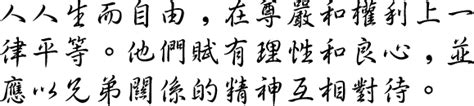 人人生而自由，在尊嚴和權利上一
律平等。他們賦有理性和良心，並
應以兄弟關係的精神互相對待。